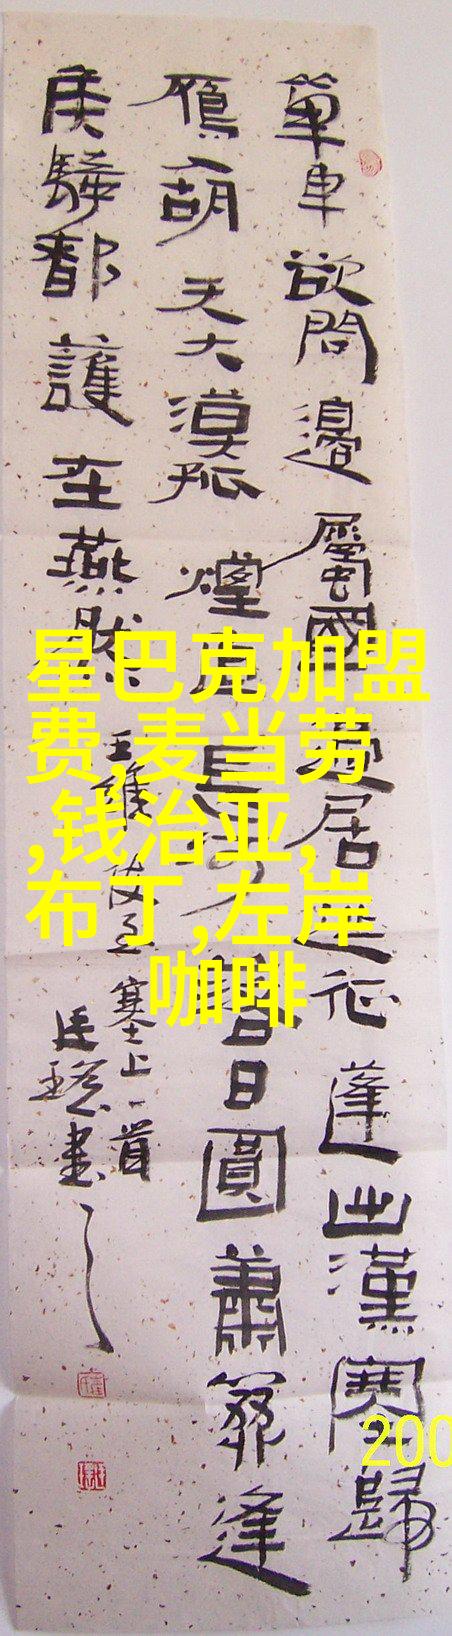 單車欲問邊屬國過居延征蓬出漢塞歸
雁入胡天大漠孤煙直長河落日圓蕭關逢
候騎都護在燕然
王維使至塞上一首
書
星巴克加盟
费,麦当劳
,钱治亚,
布丁,左岸
咖啡
200